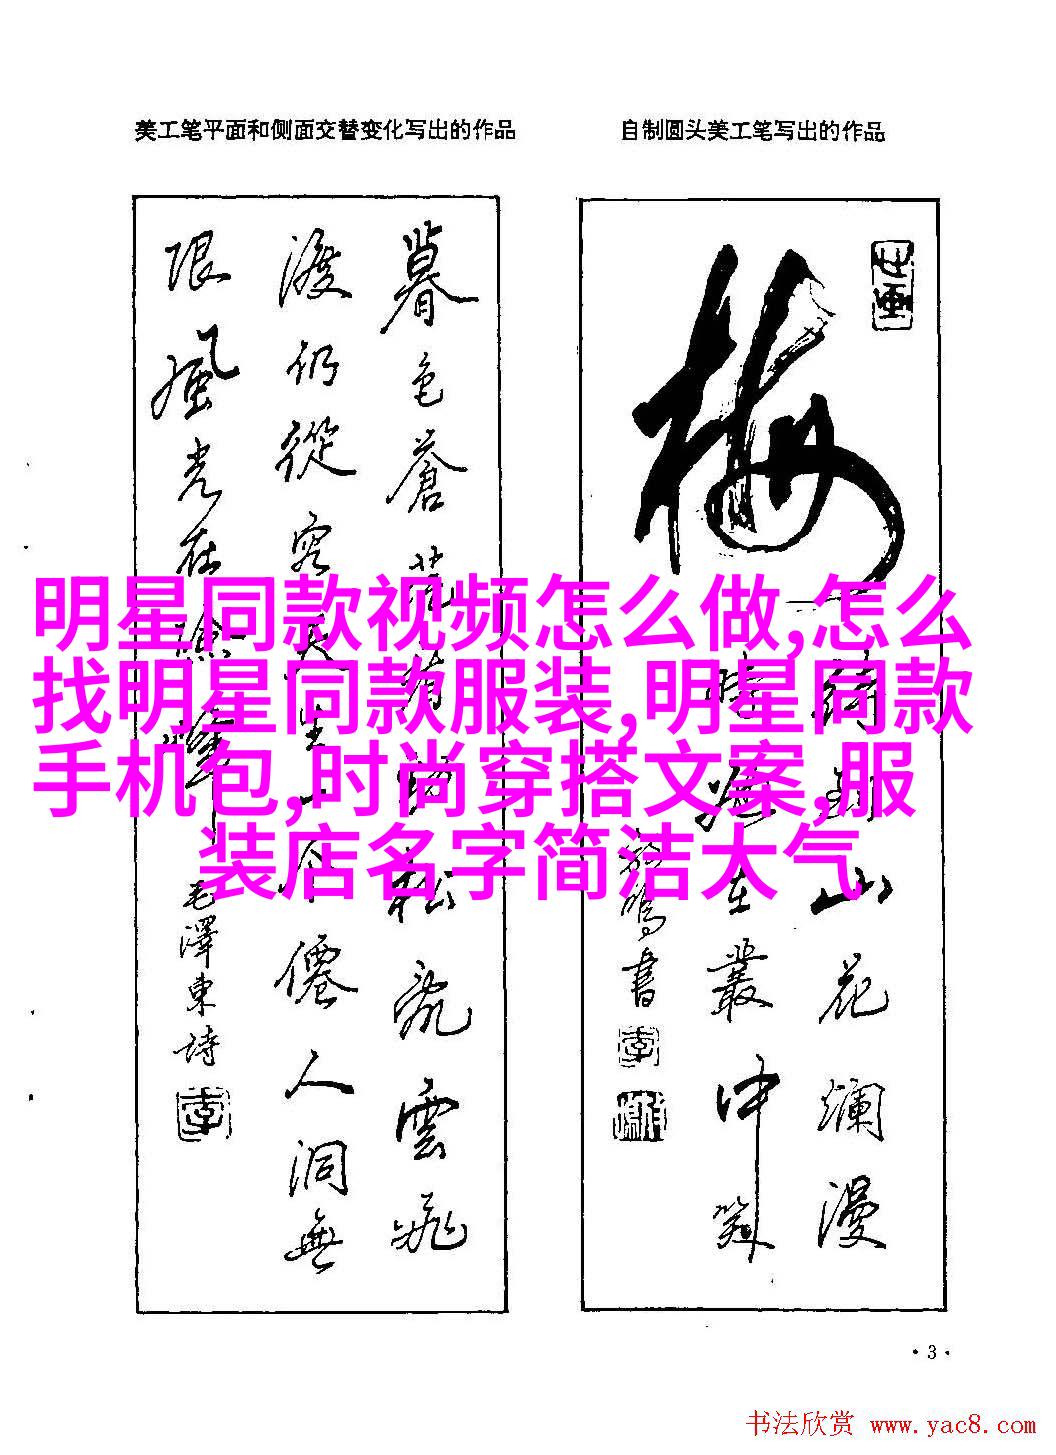 美工笔平面和侧面交替变化写出的作品
自制圆头美工笔写出的作品
暮色蒼茫看劲松乱雲飛
渡仍從容天生一个僊人洞無
限風光在險峰
毛澤東詩
梅
待到山花爛漫
時她在叢中笑
書
明星同款视频怎么做,怎么
找明星同款服装,明星同款
手机包,时尚穿搭文案,服
装店名字简洁大气
·3·
书法欣赏 www.yac8.com